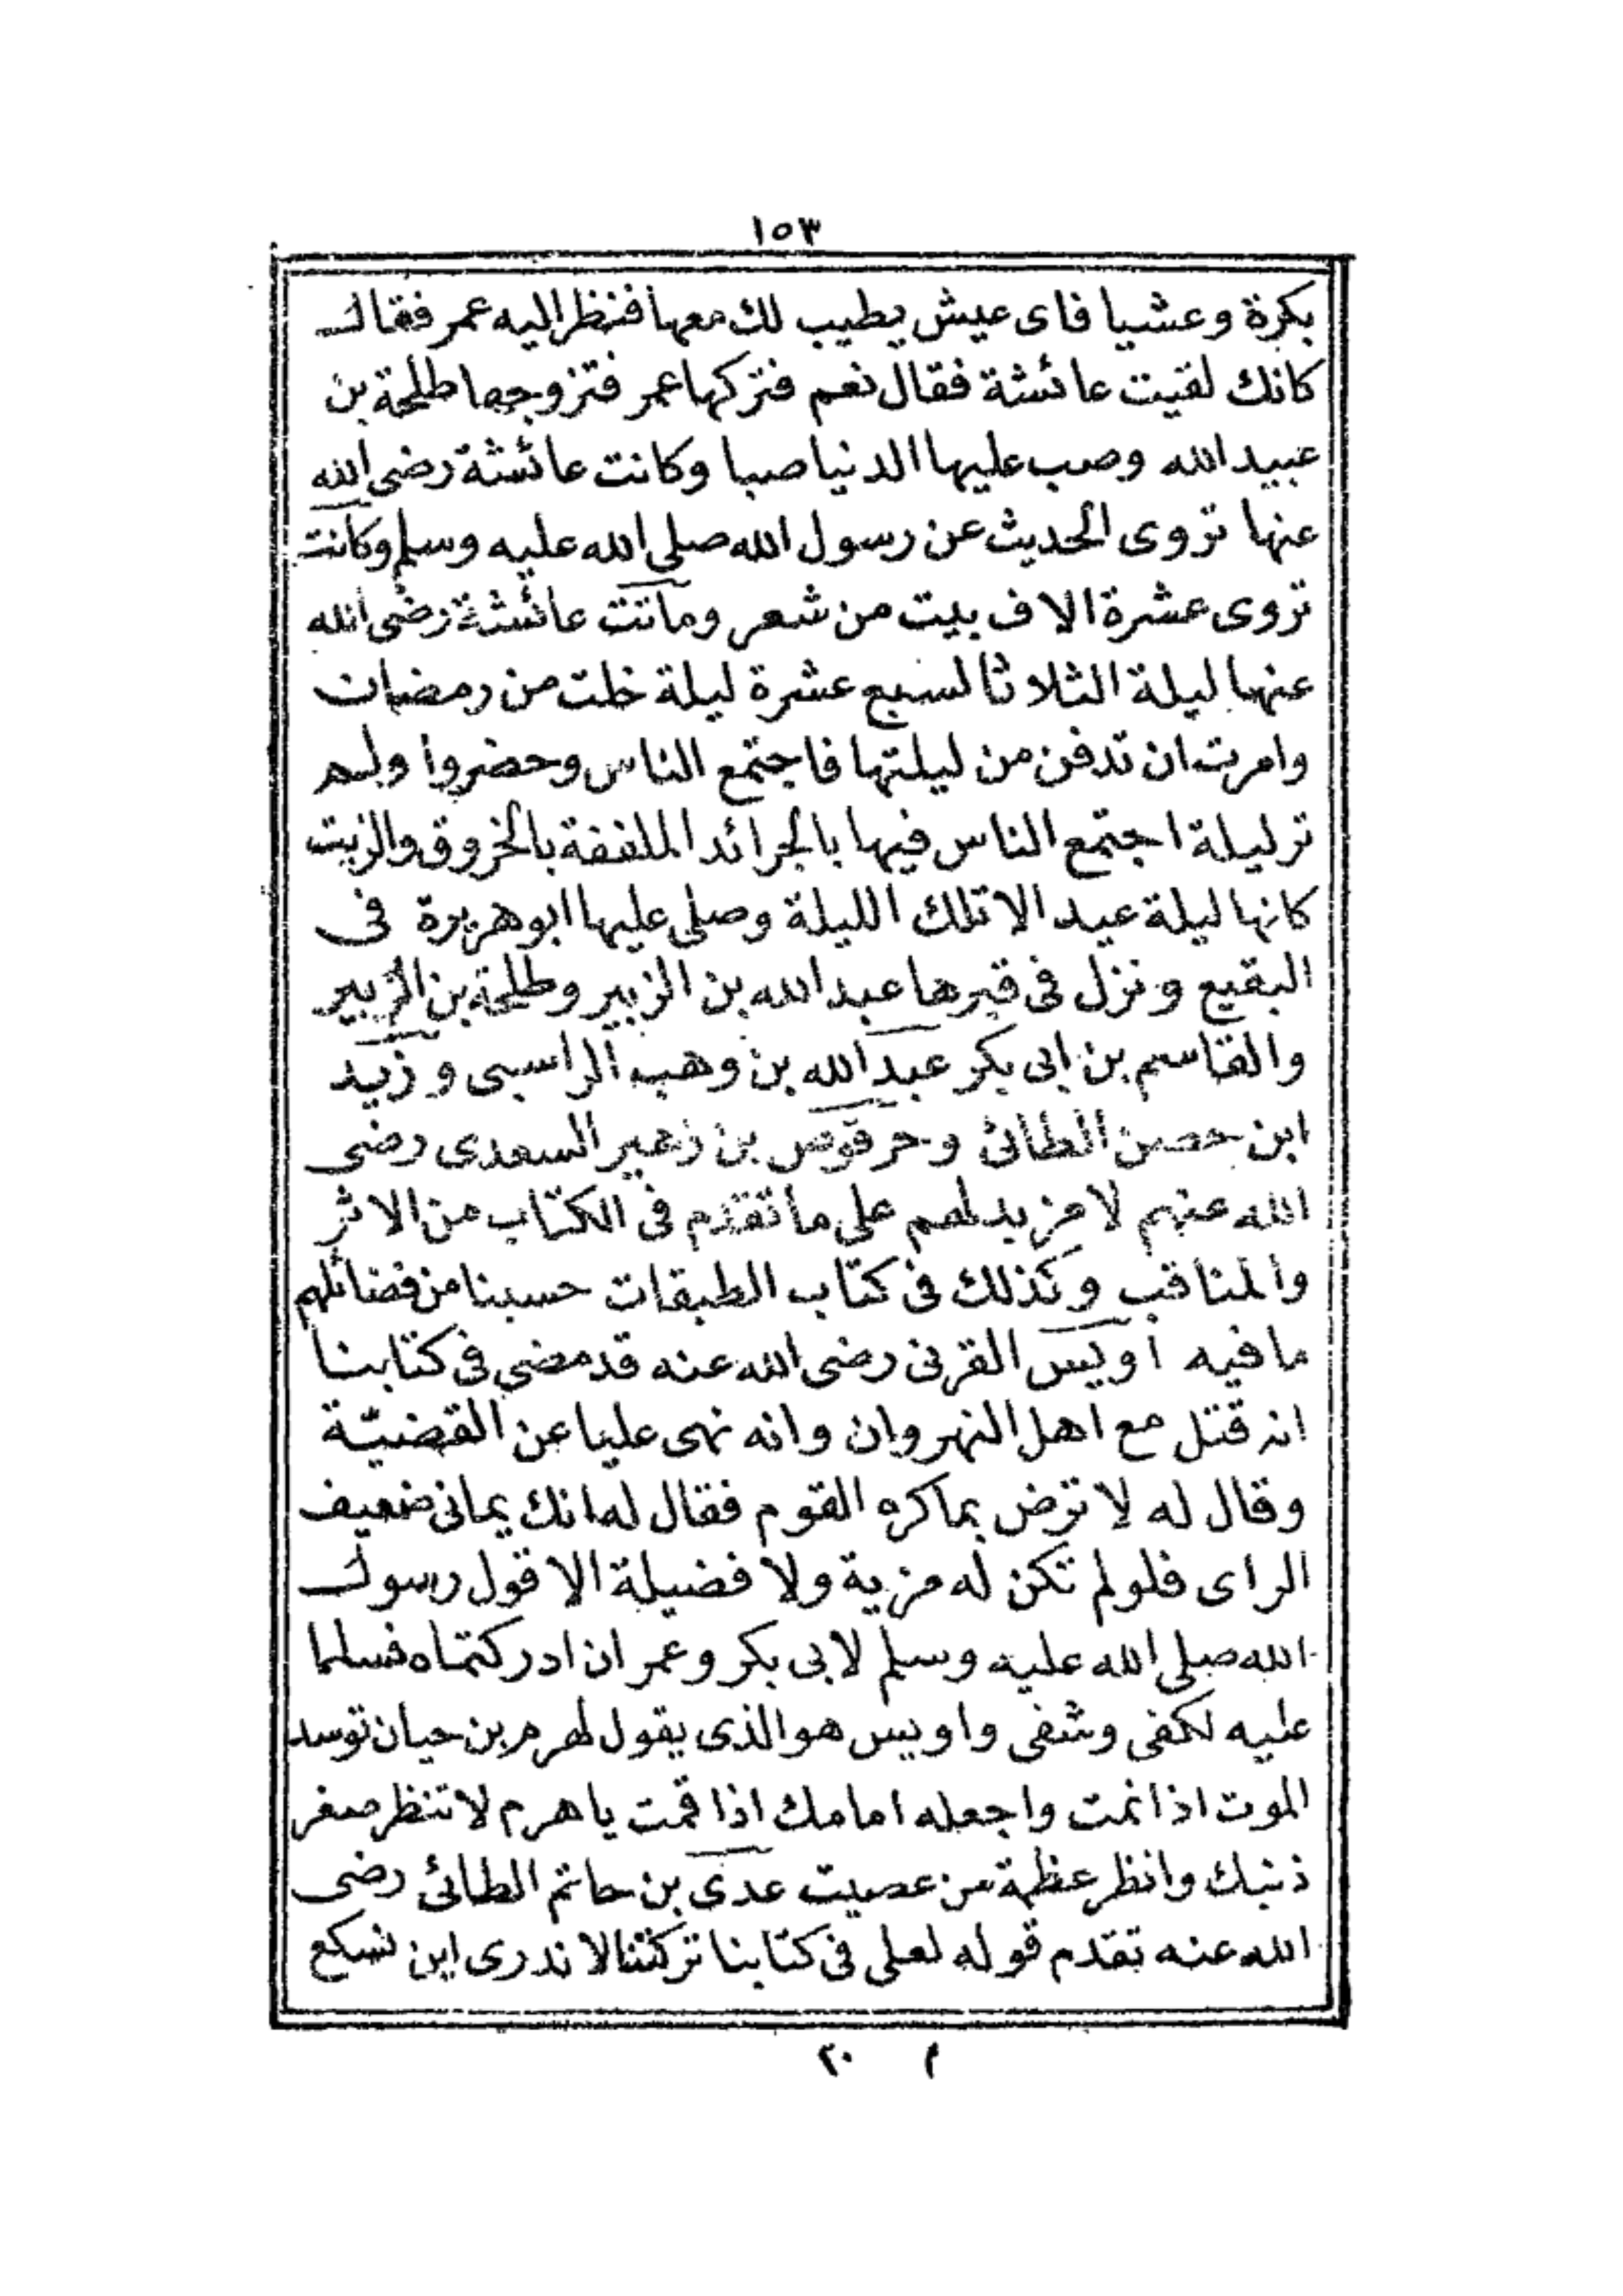 ١٥٣
بكرة وعشيا فاى عيش يطيب لك معها فنظر اليه عمر فقال
كانك لقيت عائشة فقال نعم فتركها عمر فتزوجها طلحة بن
عبيد الله وصب عليها الدنيا صبا وكانت عائشة رضى الله
عنها تروى الحديث عن رسول الله صلى الله عليه وسلم وكانت
تروى عشرة الاف بيت من شعر وماتت عائشة رضى الله
عنها ليلة الثلاثا لسبع عشرة ليلة خلت من رمضان
وامرت ان تدفن من ليلتها فاجتمع الناس وحضروا ولم
تر ليلة اجتمع الناس فيها بالجرائد الملففة بالخروق والزيت
كانها ليلة عيد الا تلك الليلة وصلى عليها ابو هريرة فى
البقيع ونزل فى قبرها عبد الله بن الزبير وطلحة بن الزبير
والقاسم بن ابى بكر عبد الله بن وهب الراسبى وزيد
ابن حصن الطائى وحرقوص بن زهير السعدى رضى
الله عنهم لا مزيد لهم على ما تقدم فى الكتاب من الاثر
والمناقب وكذلك فى كتاب الطبقات حسبنا من فضائلهم
ما فيه اويس القرنى رضى الله عنه قد مضى فى كتابنا
انه قتل مع اهل النهروان وانه نهى عليا عن القضيّة
وقال له لا ترض بما كره القوم فقال له انك يمانى ضعيف
الراى فلو لم تكن له مزية ولا فضيلة الا قول رسول
الله صلى الله عليه وسلم لابى بكر وعمر ان ادركتماه فسلما
عليه لكفى وشفى واويس هو الذى يقول لهرم بن حيان توسد
الموت اذا نمت واجعله امامك اذا قمت يا هرم لا تنظر صغر
ذنبك وانظر عظمة من عصيت عدى بن حاتم الطائى رضى
الله عنه تقدم قوله لعلى فى كتابنا تركتنا لا ندرى اين نسكع
م ٢٠